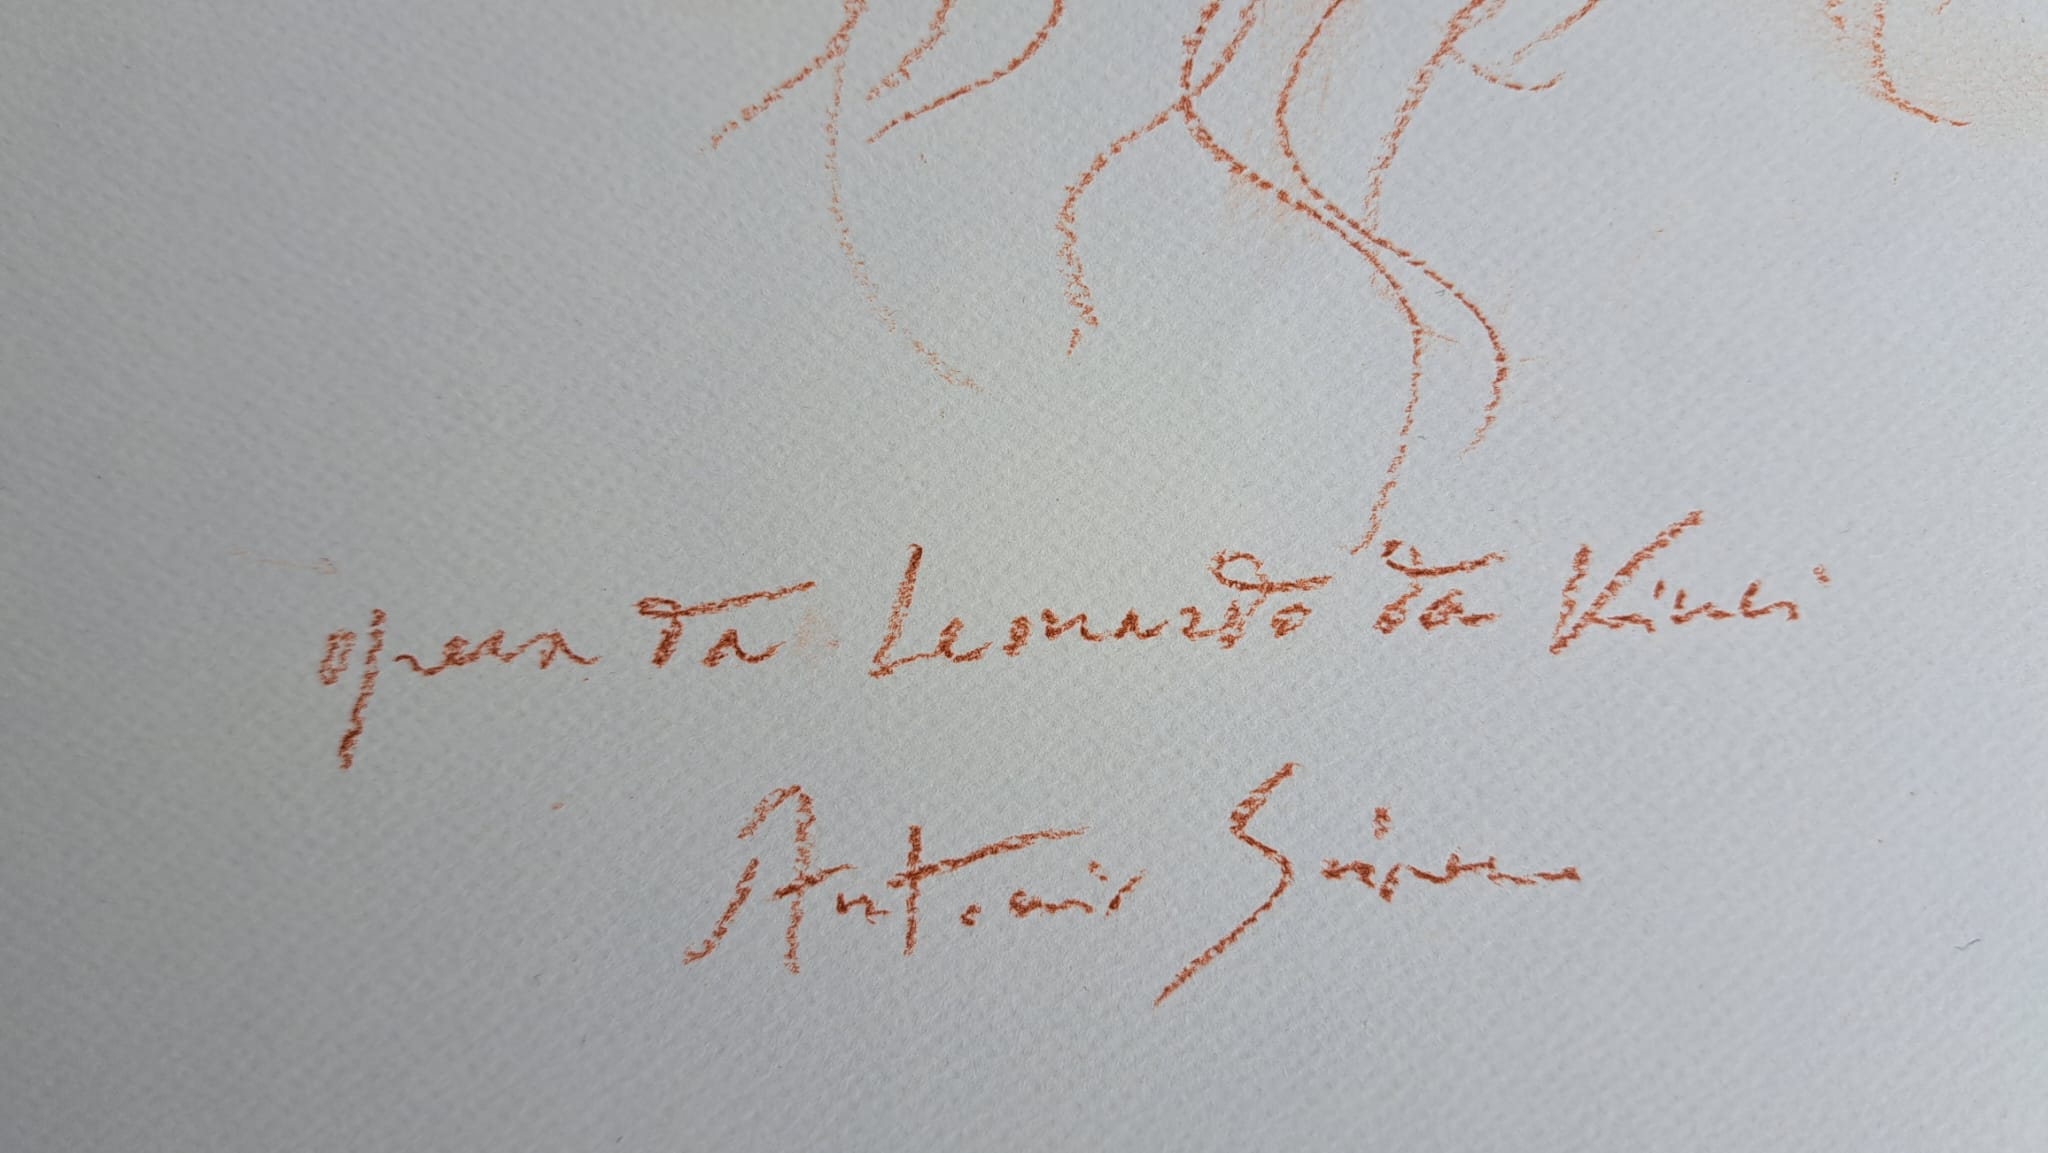 opera da Leonardo da Vinci
Antonio